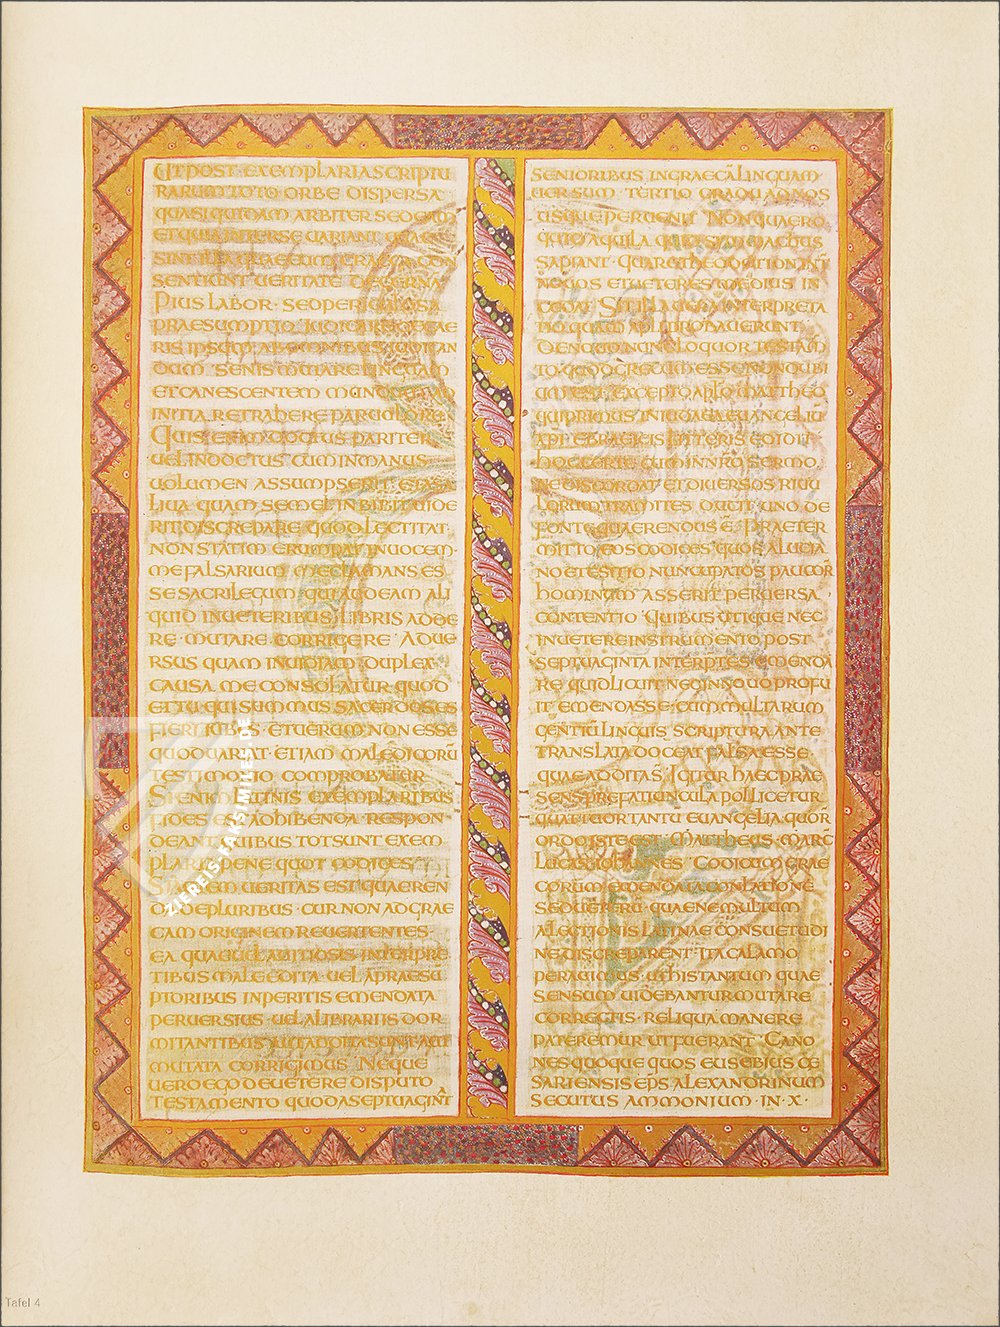 UT POST EXEMPLARIA SCRIPTU
RARUM TOTO ORBE DISPERSA
QUASI QUIDAM ARBITER SEDEAM
ET QUIA INTER SE VARIANT
SENTIUNT UERITATE DECERNA
PIUS LABOR · SED PERICULOSA
PRAESUMPTIO
DUM · SENIS MUTARE LINGUAM
ET CANESCENTEM MUNDUM
INITIA RETRAHERE PARUULORE
QUIS ENIM DOCTUS PARITER
UEL INDOCTUS CUM IN MANUS
UOLUMEN ASSUMPSERIT ET A SA
LIUA QUAM SEMEL INBIBIT UIDE
RIT DISCREPARE QUOD LECTITAT ·
NON STATIM ERUMPAT IN UOCEM ·
ME FALSARIUM ME CLAMANS ES
SE SACRILEGUM · QUI AUDEAM ALI
QUID IN UETERIBUS LIBRIS ADDE
RE · MUTARE CORRIGERE · ADUE
RSUS QUAM INUIDIAM DUPLEX
CAUSA ME CONSOLATUR QUOD
ET TU QUI SUMMUS SACERDOS ES
FIERI IUBES · ET UERUM NON ESSE
QUOD UARIAT · ETIAM MALEDICORŪ
TESTIMONIO COMPROBATUR
SI ENIM LATINIS EXEMPLARIBUS
FIDES EST ADHIBENDA · RESPON
DEANT QUIBUS TOT SUNT EXEM
PLARIA PENE QUOT CODICES
SIN AUTEM UERITAS EST QUAEREN
DA DE PLURIBUS · CUR NON AD GRAE
CAM ORIGINEM REUERTENTES ·
EA QUAE UEL A UITIOSIS INTERPRE
TIBUS MALE EDITA · UEL A PRAESU
PTORIBUS INPERITIS EMENDATA
PERUERSIUS · UEL A LIBRARIIS DOR
MITANTIBUS AUT ADDITA SUNT AUT
MUTATA CORRIGIMUS · NEQUE
UERO EGO DE UETERE DISPUTO
TESTAMENTO QUOD A SEPTUAGINTA
SENIORIBUS IN GRAECĀ LINGUAM ·
UERSUM · TERTIO GRADU AD NOS
USQUE PERUENIT · NON QUAERO
QUID AQUILA QUID SIMMACHUS
SAPIANT · QUARE THEODITION INT
NOUOS ET UETERES MEDIUS IN
CEDAT · SIT ILLA UERA INTERPRETA
TIO QUAM APLI PROBAUERUNT
DE NOUO NUNC LOQUOR TESTAM
TO · QUOD GRECUM ESSE NON DUBI
UM EST · EXCEPTO APTO MATTHEO
QUI PRIMUS IN IUDAEA EUANGELIŪ
XPI EBRAICIS LITTERIS EDIDIT
HOC CERTE CUM IN NRO SERMO
NE DISCORDAT ET DIUERSOS RIUU
LORUM TRAMITES DUCIT UNO DE
FONTE QUAERENDUS Ē · PRAETER
MITTO EOS CODICES QUOS A LUCIA
NO ET ESITIO NUNCUPATOS PAUCOR
HOMINUM ASSERIT PERUERSA
CONTENTIO · QUIBUS UTIQUE NEC
IN UETERE INSTRUMENTO POST
SEPTUAGINTA INTERPTES EMENDA
RE QUID LICUIT NEC IN NOUO PROFU
IT EMENDASSE · CUM MULTARUM
GENTIŪ LINGUIS SCRIPTURA ANTE
TRANSLATA DOCEAT FALSA ESSE ·
QUAE ADDITA S · IGITUR HAEC PRAE
SENS PREFATIUNCULA POLLICETUR
QUATTUOR TANTU EUANGELIA QUOR
ORDO ISTE EST · MATTHEUS · MARC
LUCAS IOHANNES · CODICUM GRAE
CORUM EMENDATA CONLATIONE
SED UETERU · QUAE NE MULTUM
A LECTIONIS LATINAE CONSUETUDI
NE DISCREPARENT · ITA CALAMO
PERAUIMUS · UT HIS TANTUM QUAE
SENSUM UIDEBANTUR MUTARE
CORRECTIS · RELIQUA MANERE
PATEREMUR UT FUERANT · CANO
NES QUOQUE QUOS EUSEBIUS CE
SARIENSIS EPS ALEXANDRINUM
SECUTUS AMMONIUM · IN · X ·
ZIEREIS-FAKSIMILES.DE
Tafel 4